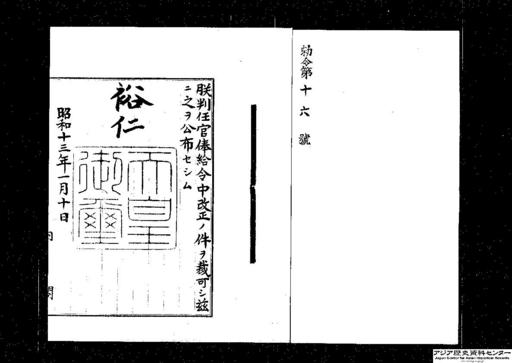 勅令第十六號
朕判任官俸給令中改正ノ件ヲ裁可シ茲
ニ之ヲ公布セシム
裕仁
天皇御璽
昭和十三年一月十日
内閣
アジア歴史資料センター
Japan Center for Asian Historical Records